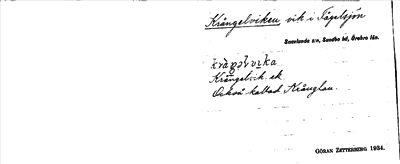 Krångelviken vik i Fågelsjön
Snavlunda sn, Sundbo hd, Örebro län.
Krångelvik ek
Också kallad Krånglan.
GÖRAN ZETTERBERG 1934.